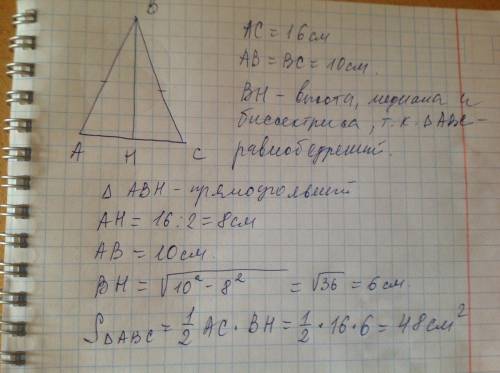 B
A
H
C
AC = 16 см
AB = BC = 10 см.
BH - высота, медиана и
биссектриса, т.к. ΔABC -
равнобедренный.
Δ ABH - прямоугольный
AH = 16 : 2 = 8 см
AB = 10 см.
BH = √10² - 8² = √36 = 6 см.
SΔABC = 1/2 AC · BH = 1/2 · 16 · 6 = 48 см²